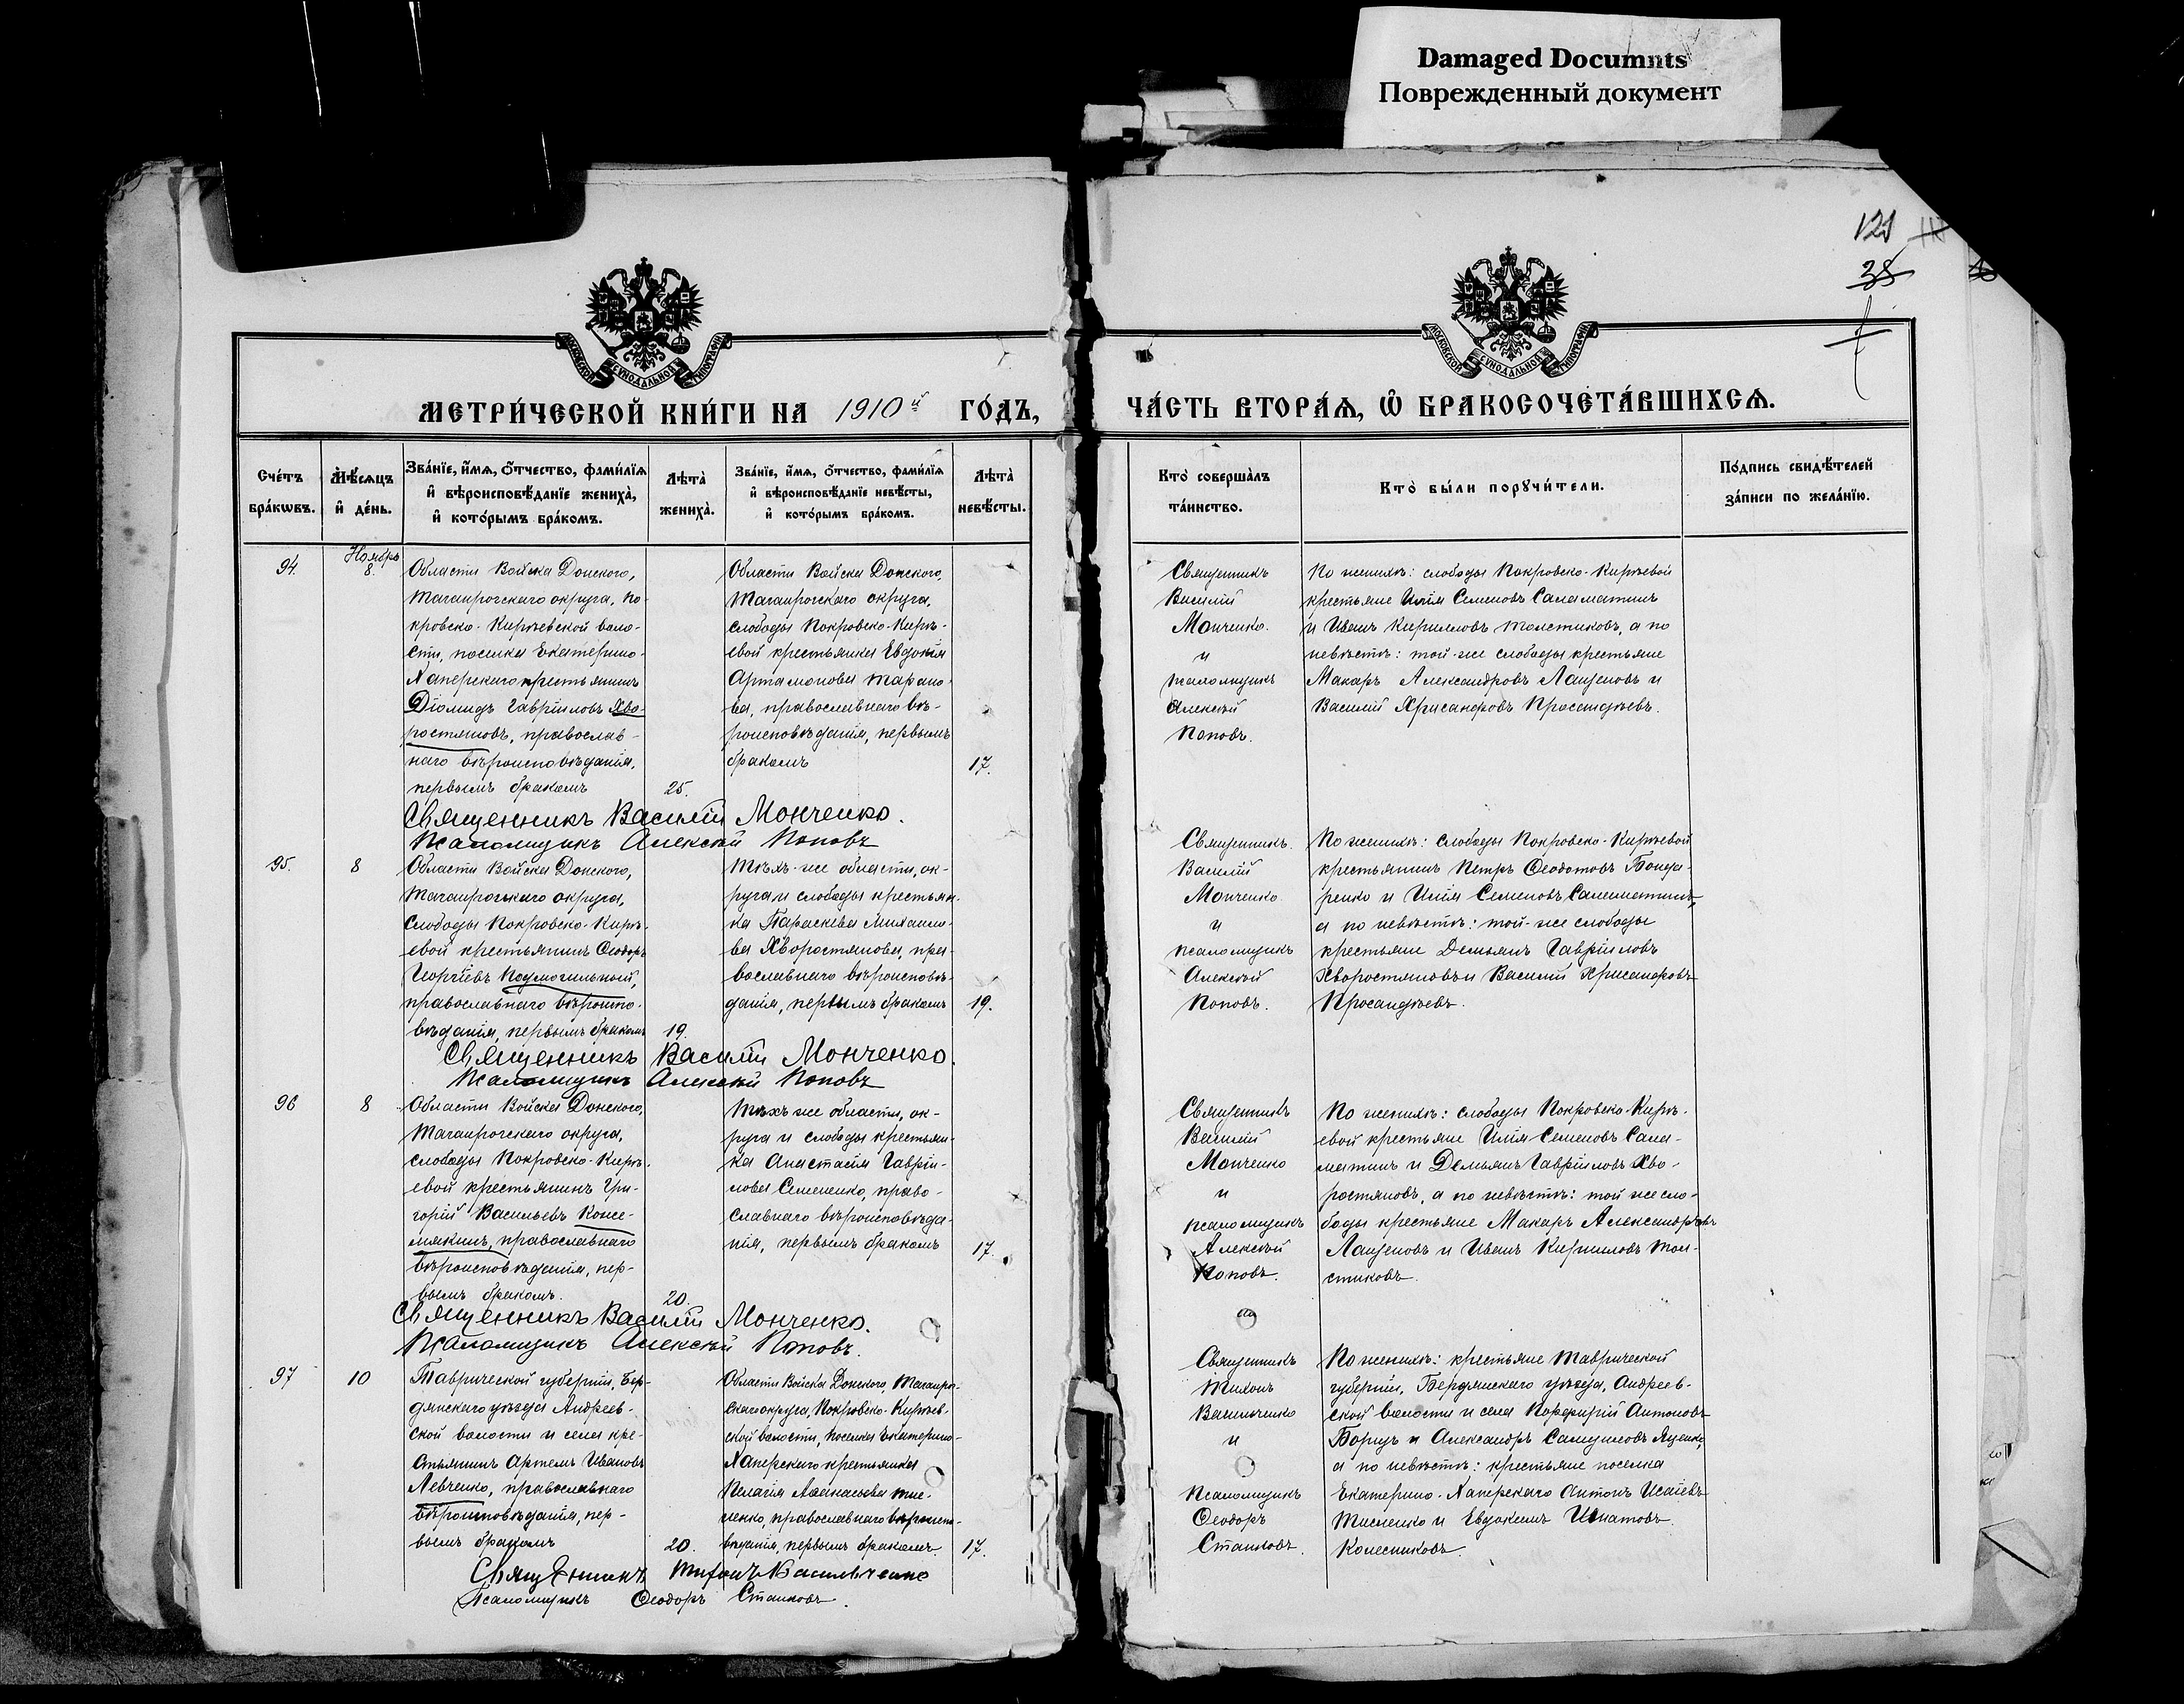 Damaged Documnts
Поврежденный документ
121
35
МОСКОВСКОЙ СУНОДАЛЬНОЙ ТИПОГРАФІИ
МОСКОВСКОЙ СУНОДАЛЬНОЙ ТИПОГРАФІИ
МЕТРИ́ЧЕСКОЙ КНИ́ГИ НА 1910й ГО́ДЪ,
ЧА́СТЬ ВТОРА́Ѧ, Ѽ БРАКОСОЧЕТА́ВШИХСѦ.
Сче́тъ
бра́кѡвъ.
Мѣ́сѧцъ
и҆ де́нь.
Зва́нїе, и҆́мѧ, ѻ҆́тчество, фами́лїѧ
и҆ вѣроисповѣ́данїе жениха̀,
и҆ кото́рымъ бра́комъ.
Лѣта̀
жениха̀.
Зва́нїе, и҆́мѧ, ѻ҆́тчество, фами́лїѧ
и҆ вѣроисповѣ́данїе невѣ́сты,
и҆ кото́рымъ бра́комъ.
Лѣта̀
невѣ́сты.
Кто̀ соверша́лъ
та́инство.
Кто̀ бы́ли порꙋчи́тели.
По́дпись свидѣ́телей
за́писи по жела́нїю.
94.
Ноябрь
8.
Области Войска Донского,
Таганрогскаго округа, По-
кровско-Кирѣевской воло-
сти, поселка Екатерино-
Хаперскаго крестьянинъ
Діомидъ Гавріиловъ Хво-
ростяновъ, православ-
наго вѣроисповѣданія,
первымъ бракомъ
25.
Области Войска Донского,
Таганрогскаго округа,
слободы Покровско-Кирѣ-
евой крестьянка Евдокія
Артамонова Тарано-
ва, православнаго вѣ-
роисповѣданія, первымъ
бракомъ
17.
Священникъ
Василій
Монченко.
и
псаломщикъ
Алексѣй
Поповъ.
По женихѣ: слободы Покровско-Кирѣевой
крестьяне Илія Семеновъ Саламатинъ
и Иванъ Кирилловъ Толстиковъ, а по
невѣстѣ: той-же слободы крестьяне
Макаръ Александровъ Лащеновъ и
Василій Хрисанфовъ Просандѣевъ.
Священникъ Василій Монченко.
Псаломщикъ Алексѣй Поповъ
95.
8
Области Войска Донского,
Таганрогскаго округа,
слободы Покровско-Кирѣ-
евой крестьянинъ Ѳеодоръ
Георгіевъ Подмогильный,
православнаго вѣроиспо-
вѣданія, первымъ бракомъ
19.
Тѣхъ-же области, ок-
руга и слободы крестьян-
ка Параскева Михаило-
ва Хворостянова, пра-
вославнаго вѣроисповѣ-
данія, первымъ бракомъ
19.
Священникъ.
Василій
Монченко
и
псаломщикъ
Алексѣй
Поповъ.
По женихѣ: слободы Покровско-Кирѣевой
крестьянинъ Петръ Ѳеодотовъ Бонда-
ренко и Илія Семеновъ Саламатинъ,
а по невѣстѣ: той-же слободы
крестьяне Демьянъ Гавріиловъ
Хворостяновъ и Василій Хрисанфовъ
Просандѣевъ.
Священникъ Василій Монченко.
Псаломщикъ Алексѣй Поповъ
96
8
Области Войска Донского,
Таганрогскаго округа,
слободы Покровско-Кирѣ-
евой крестьянинъ Гри-
горій Васильевъ Коже-
мякинъ, православнаго
вѣроисповѣданія, пер-
вымъ бракомъ.
20.
Тѣхъ же области, ок-
руга и слободы крестьян-
ка Анастасія Гавріи-
лова Семененко, право-
славнаго вѣроисповѣда-
нія, первымъ бракомъ
17.
Священникъ
Василій
Монченко
и
псаломщикъ
Алексѣй
Поповъ.
По женихѣ: слободы Покровско-Кирѣ-
евой крестьяне Илія Семеновъ Сала-
матинъ и Демьянъ Гавріиловъ Хво-
ростяновъ, а по невѣстѣ: той же сло-
боды крестьяне Макаръ Александровъ
Лащеновъ и Иванъ Кирилловъ Тол-
стиковъ.
Священникъ Василій Монченко.
Псаломщикъ Алексѣй Поповъ.
97
10
Таврической губерніи, Бер-
дянскаго уѣзда Андреев-
ской волости и села кре-
стьянинъ Артемъ Ивановъ
Левченко, православнаго
вѣроисповѣданія, пер-
вымъ бракомъ
20.
Области Войска Донского, Таганрог-
скаго округа, Покровско-Кирѣев-
ской волости, поселка Екатерино-
Хаперскаго крестьянка
Пелагія Аѳанасьева Тис-
ленко, православнаго вѣроиспо-
вѣданія, первымъ бракомъ.
17.
Священникъ
Тихонъ
Васильченко
и
Псаломщикъ
Ѳеодоръ
Станковъ.
По женихѣ: крестьяне Таврической
губерніи, Бердянскаго уѣзда, Андреев-
ской волости и села Порфирій Антоновъ
Борщъ и Александръ Самуиловъ Яценко,
а по невѣстѣ: крестьяне поселка
Екатерино-Хаперскаго Антонъ Исаіевъ
Тисленко и Евдокимъ Игнатовъ
Колесниковъ.
Священникъ Тихонъ Васильченко
Псаломщикъ Ѳеодоръ Станковъ.